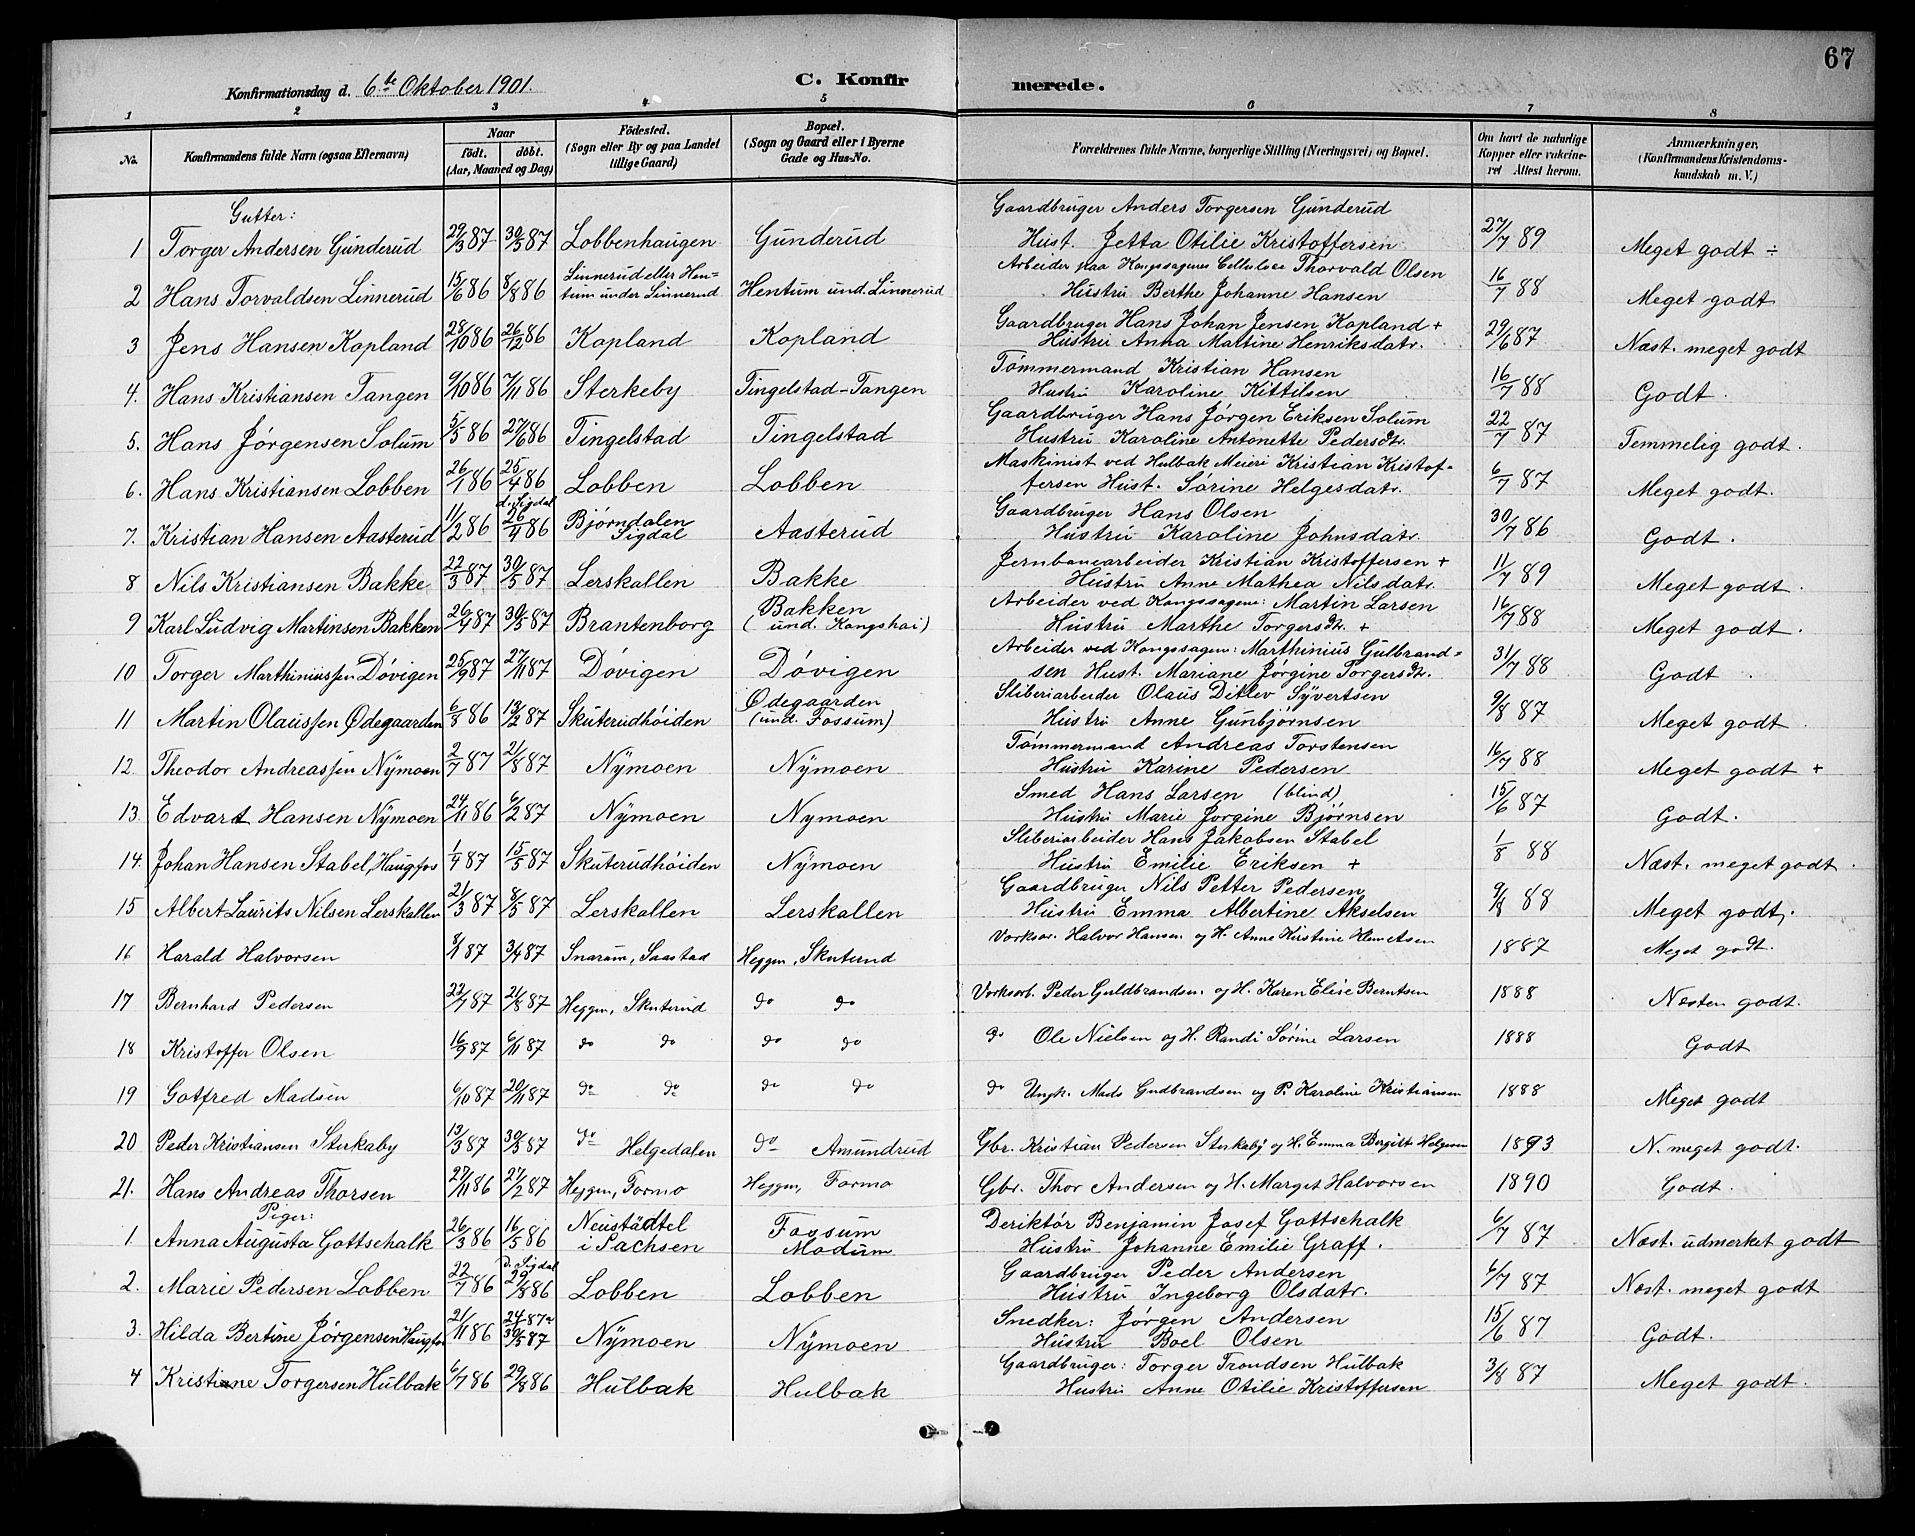 67
Konfirmationsdag d. 6te Oktober 1901.
C. Konfirmerede.
1 2 3 4 5 6 7 8
No. Konfirmandens fulde Navn (ogsaa Efternavn) Naar födt. döbt. (Aar, Maaned og Dag) Födested. (Sogn eller By og paa Landet tillige Gaard) Bopæl. (Sogn og Gaard eller i Byerne Gade og Hus-No. Forældrenes fulde Navne, borgerlige Stilling (Næringsvei) og Bopæl. Om havt de naturlige Kopper eller vakcineret Attest herom. Anmærkninger, (Konfirmandens Kristendomskundskab m. V.)
Gutter:
1 Torger Andersen Gunderud 29/3 87 30/5 87 Lobbenhaugen Gunderud Gaardbruger Anders Torgersen Gunderud Hust. Jetta Otilie Kristoffersen 27/7 89 Meget godt ÷
2 Hans Torvaldsen Linnerud 15/6 86 8/8 86 Linnerud eller Hentum under Linnerud Hentum und. Linnerud Arbeider paa Kongssagenes Cellulose Thorvald Olsen Hustru Berthe Johanne Hansen 16/7 88 Meget godt
3 Jens Hansen Kopland 28/10 86 26/12 86 Kopland Kopland Gaardbruger Hans Johan Jensen Kopland + Hustru Anna Martine Henriksdatr. 29/6 87 Næst. meget godt
4. Hans Kristiansen Tangen 9/10 86 7/11 86 Sterkeby Tingelstad-Tangen Tömmermand Kristian Hansen Hustru Karoline Kittilsen 16/7 88 Godt.
5. Hans Jörgensen Solum 5/5 86 27/6 86 Tingelstad Tingelstad Gaardbruger Hans Jörgen Eriksen Solum Hustru Karoline Antonette Pedersdtr. 22/7 87 Temmelig godt.
6. Hans Kristiansen Lobben 26/1 86 25/4 86 Lobben Lobben Maskinist ved Hulbak Meieri Kristian Kristoffersen Hust. Sörine Helgesdatr. 6/7 87 Meget godt.
7. Kristian Hansen Aasterud 11/2 86 d. Sigdal 26/4 86 Bjørndalen Sigdal Aasterud Gaardbruger Hans Olsen Hustru Karoline Johnsdatr. 30/7 86 Godt.
8 Nils Kristiansen Bakke 22/3 87 30/5 87 Lerskallen Bakke Jernbanearbeider Kristian Kristoffersen + Hustru Anne Mathea Nilsdatr. 11/7 89 Meget godt.
9 Karl Ludvig Martinsen Bakken 26/4 87 30/5 87 Brantenborg Bakken (und. Kongshai) Arbeider ved Kongssagene: Martin Larsen Hustru Marthe Torgersdtr. + 16/7 88 Meget godt.
10 Torger Marthiniussen Dövigen 25/9 87 27/11 87 Dövigen Dövigen Arbeider ved Kongssagene: Marthinius Gulbrandsen Hust. Mariane Jörgine Torgersdtr. 31/7 88 Godt.
11 Martin Olaussen Ødegaarden 6/8 86 13/2 87 Skuterudhöiden Ødegaarden (und. Fossum) Sliberiarbeider Olaus Ditlev Syvertsen Hustru Anne Gunbjørnsen 9/8 87 Meget godt.
12. Theodor Andreassen Nymoen 2/7 87 21/8 87 Nymoen Nymoen Tömmermand Andreas Torstensen Hustru Karine Pedersen 16/7 88 Meget godt +
13. Edvart Hansen Nymoen 24/11 86 6/2 87 Nymoen Nymoen Smed Hans Larsen (blind) Hustru Marie Jorgine Bjørnsen 15/6 87 Godt.
14. Johan Hansen Stabel, Haugfos 1/4 87 15/5 87 Skuterudhöiden Nymoen Sliberiarbeider Hans Jakobsen Stabel Hustru Emilie Eriksen + 1/8 88 Næst. meget godt.
15 Albert Laurits Nilsen Lerskallen 21/3 87 8/5 87 Lerskallen Lerskallen Gaardbruger Nils Petter Pedersen Hustru Emma Albertine Akselsen 9/8 88 Meget godt.
16 Harald Halvorsen 8/1 87 3/4 87 Snarum, Saastad Heggen, Skuterud Værksar. Halvor Hansen og H. Anne Kirstine Klemetsen 1887 Meget godt.
17 Bernhard Pedersen 22/7 87 21/8 87 Heggen, Skuterud do do Værksarb. Peder Guldbrandsen og H. Karen Elise Berntsen 1888 Næsten godt.
18 Kristoffer Olsen 16/9 87 6/11 87 do do do do do Ole Nielsen og H. Randi Sörine Larsen 1888 Godt
19 Gotfred Madsen 6/10 87 20/11 87 do do do do do Ungk. Mads Gudbrandsen og P. Karoline Kristiansen 1888 Meget godt
20 Peder Kristiansen Sterkaby 13/3 87 30/5 87 do Helgedalen do Amundrud Gbr. Kristian Pedersen Sterkaby og H. Emma Bergitt Helgesen 1893 N. meget godt.
21. Hans Andreas Thorsen 27/11 86 27/2 87 Heggen, Formo Heggen, Formo Gbr. Thor Andersen og H. Marget Halvorsen 1890 Godt.
Piger:
1. Anna Augusta Gottschalk 26/3 86 16/5 86 Neustädtel i Sachsen Fossum Modum Deriktör Benjamin Josef Gottschalk Hustru Johanne Emilie Graff. 6/7 87 Næst. udmerket godt
2. Marie Pedersen Lobben 22/7 86 d. Sigdal 29/8 86 Lobben Lobben Gaardbruger Peder Andersen Hustru Ingeborg Olsdatr. 6/7 87 Næst. meget godt
3. Hilda Bertine Jörgensen Haugfos 21/11 86 30/5 87 Nymoen Nymoen Snedker: Jörgen Andersen Hustru Boel Olsen 15/6 87 Godt.
4 Kristiane Torgersen Hulbak 6/7 86 29/8 86 Hulbak Hulbak Gaardbruger: Torger Trondsen Hulbak Hustru Anne Otilie Kristoffersen 3/8 87 Meget godt.